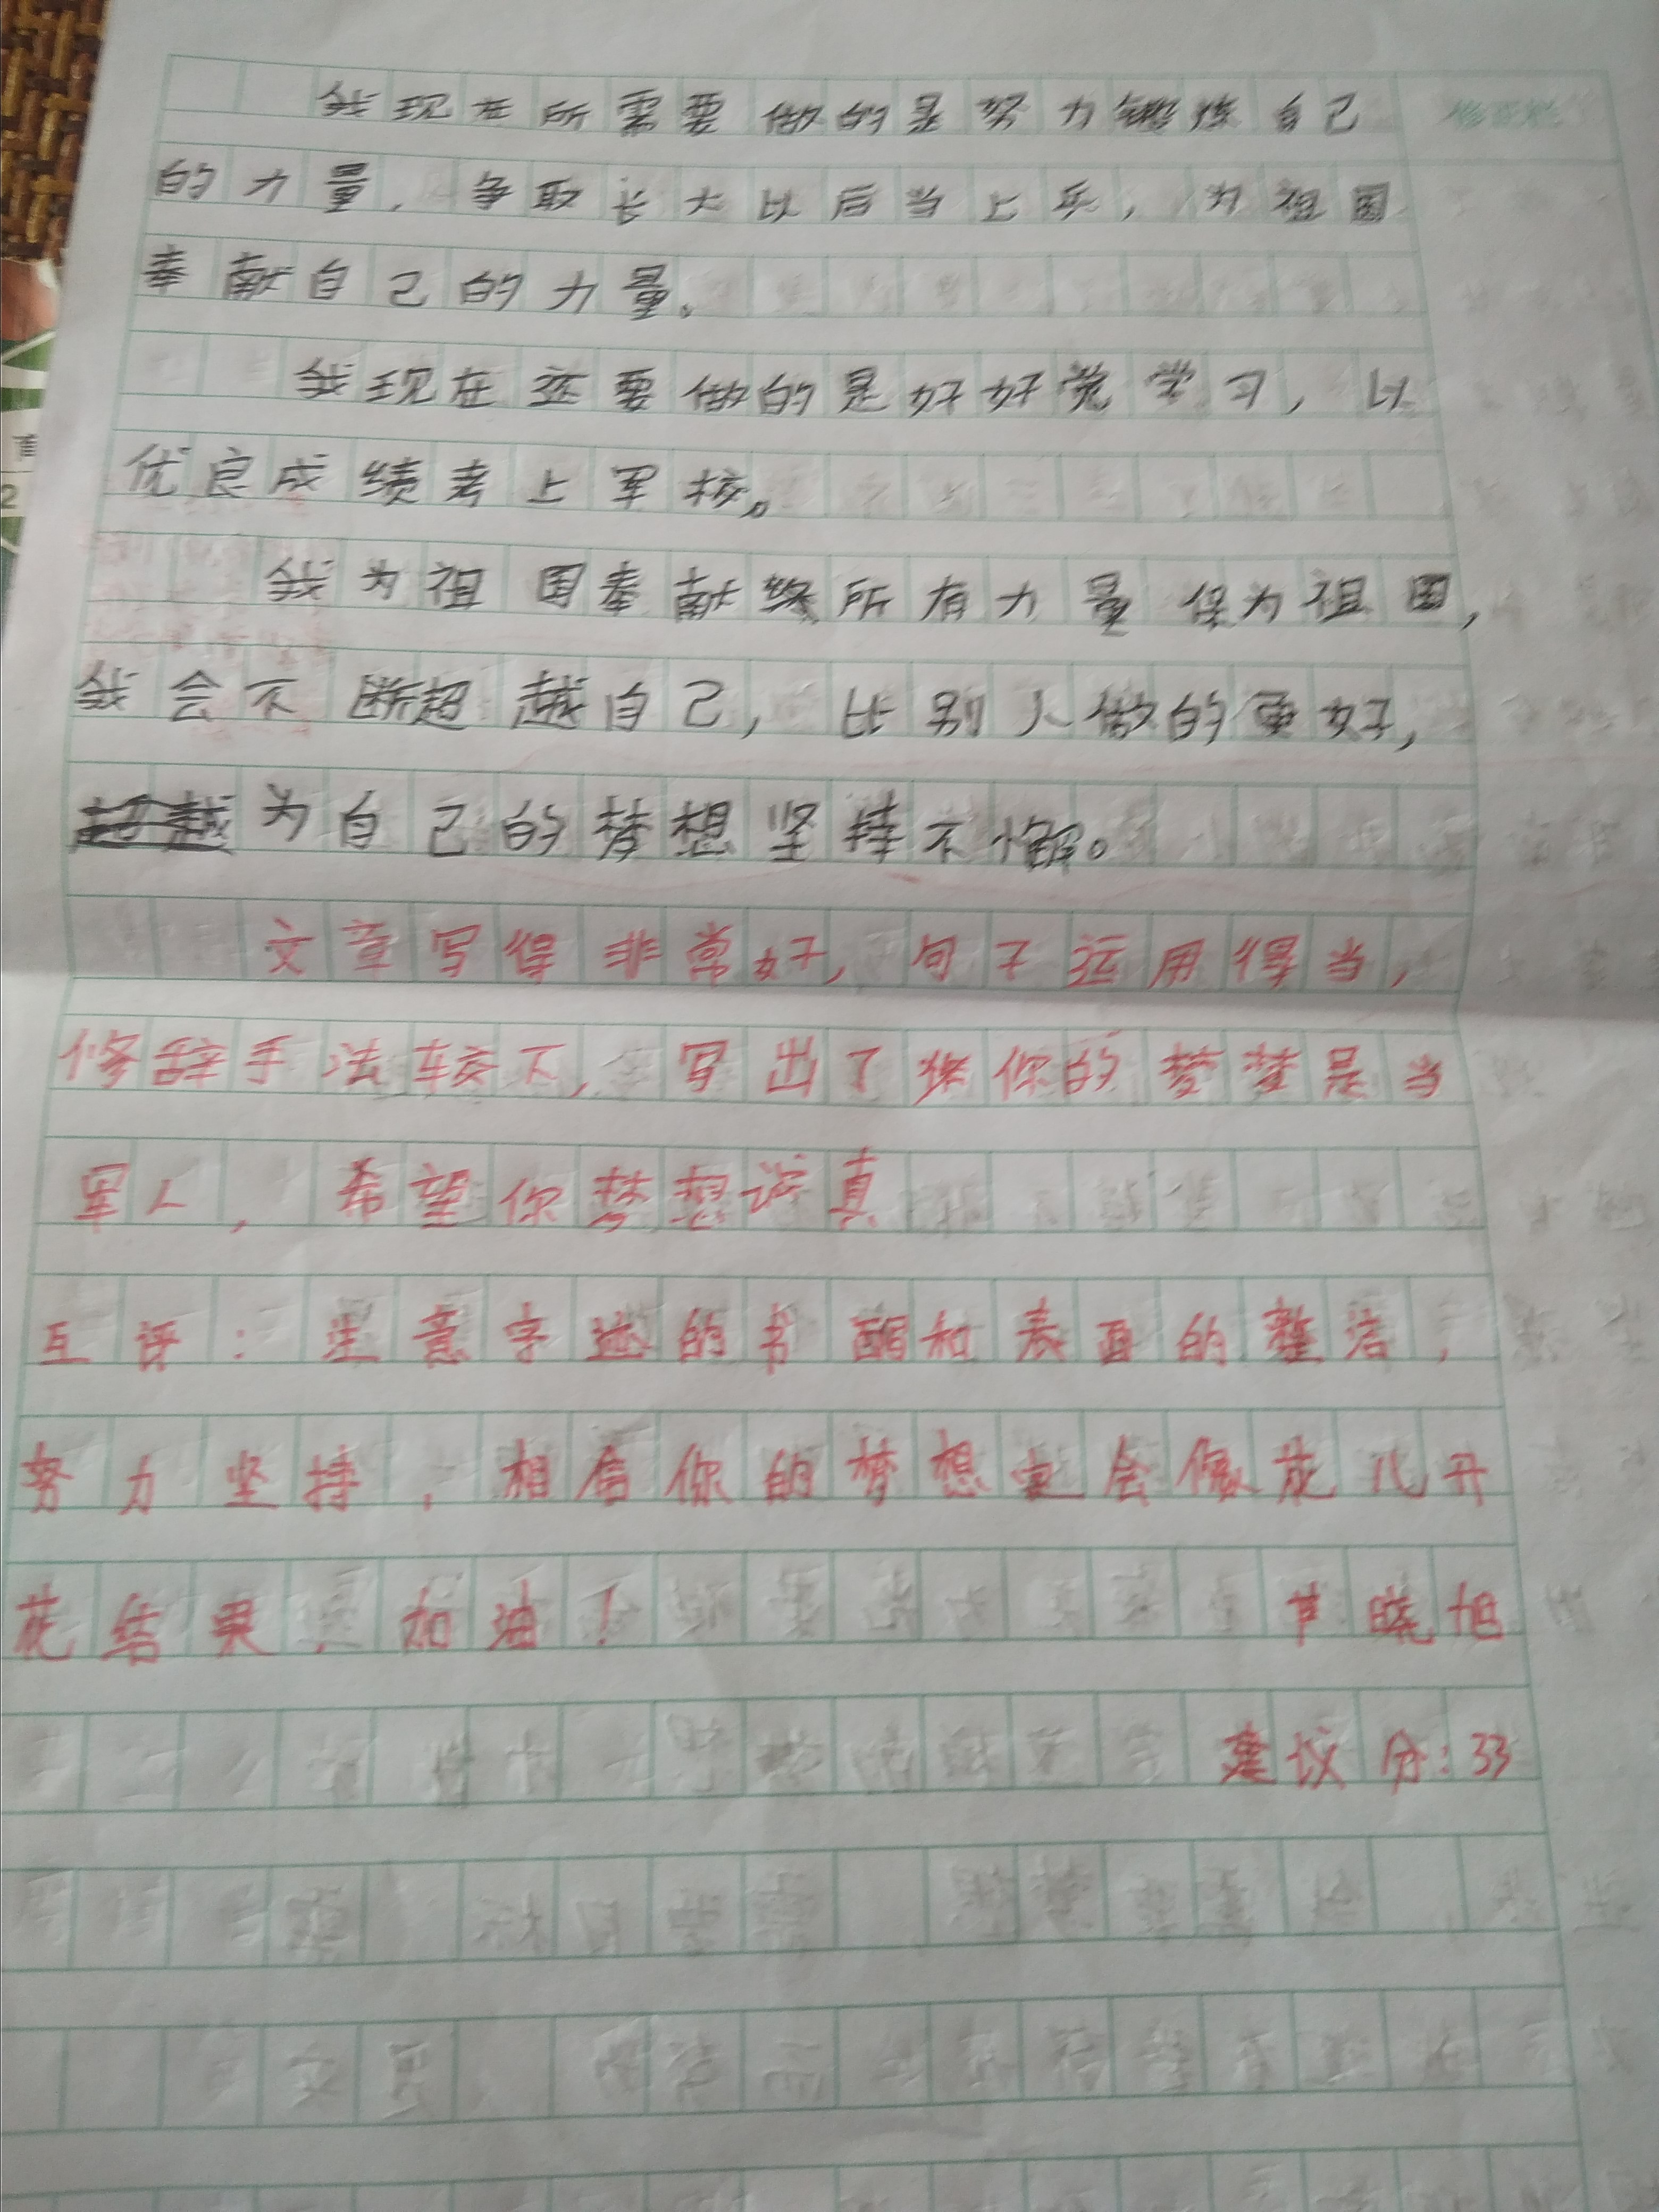 修正栏
我现在所需要做的是努力锻炼自己
的力量，争取长大以后当上兵，为祖国
奉献自己的力量。
我现在还要做的是好好觉学习，以
优良成绩考上军校。
我为祖国奉献所有力量保为祖国，
我会不断超越自己，比别人做的更好，
为自己的梦想坚持不懈。
文章写得非常好，句子运用得当，
修辞手法较下，写出了你的梦梦是当
军人，希望你梦想成真
互评：注意字迹的书面和表面的整洁，
努力坚持，相信你的梦想定会像花儿开
花结果，加油！ 晓旭
建议分：33